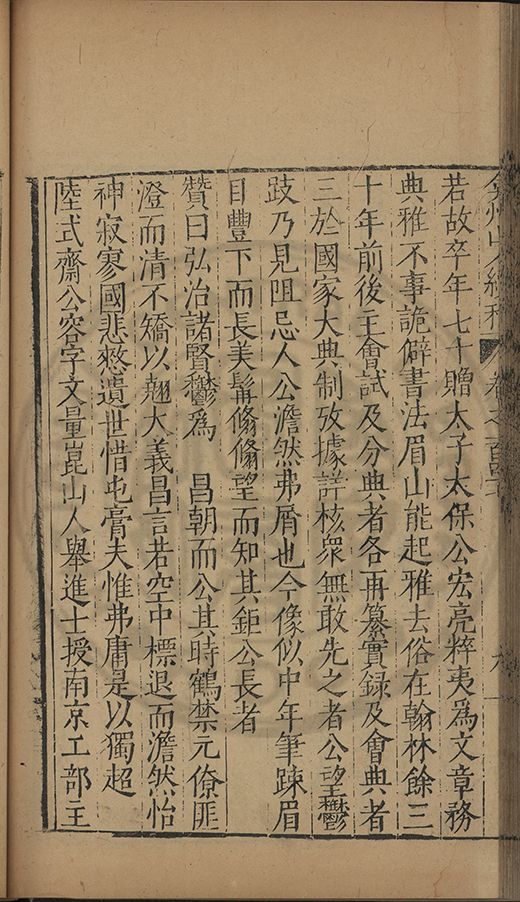 弇州山人續稿 卷之一百四十
若故卒年七十贈太子太保公宏亮粹夷爲文章務
典雅不事詭僻書法眉山能起雅去俗在翰林餘三
十年前後主會試及分典者各再纂實録及會典者
三於國家大典制攷據詳核衆無敢先之者公望鬱
跂乃見阻忌人公澹然弗屑也今像似中年筆踈眉
目豐下而長美髯翛翛望而知其鉅公長者
贊曰弘治諸賢鬱爲 昌朝而公其時鶴禁元僚匪
澄而清不矯以翹大義昌言若空中標退而澹然怡
神寂寥國悲憖遺世惜屯膏夫惟弗庸是以獨超
陸式齋公容字文量崑山人舉進士授南京工部主